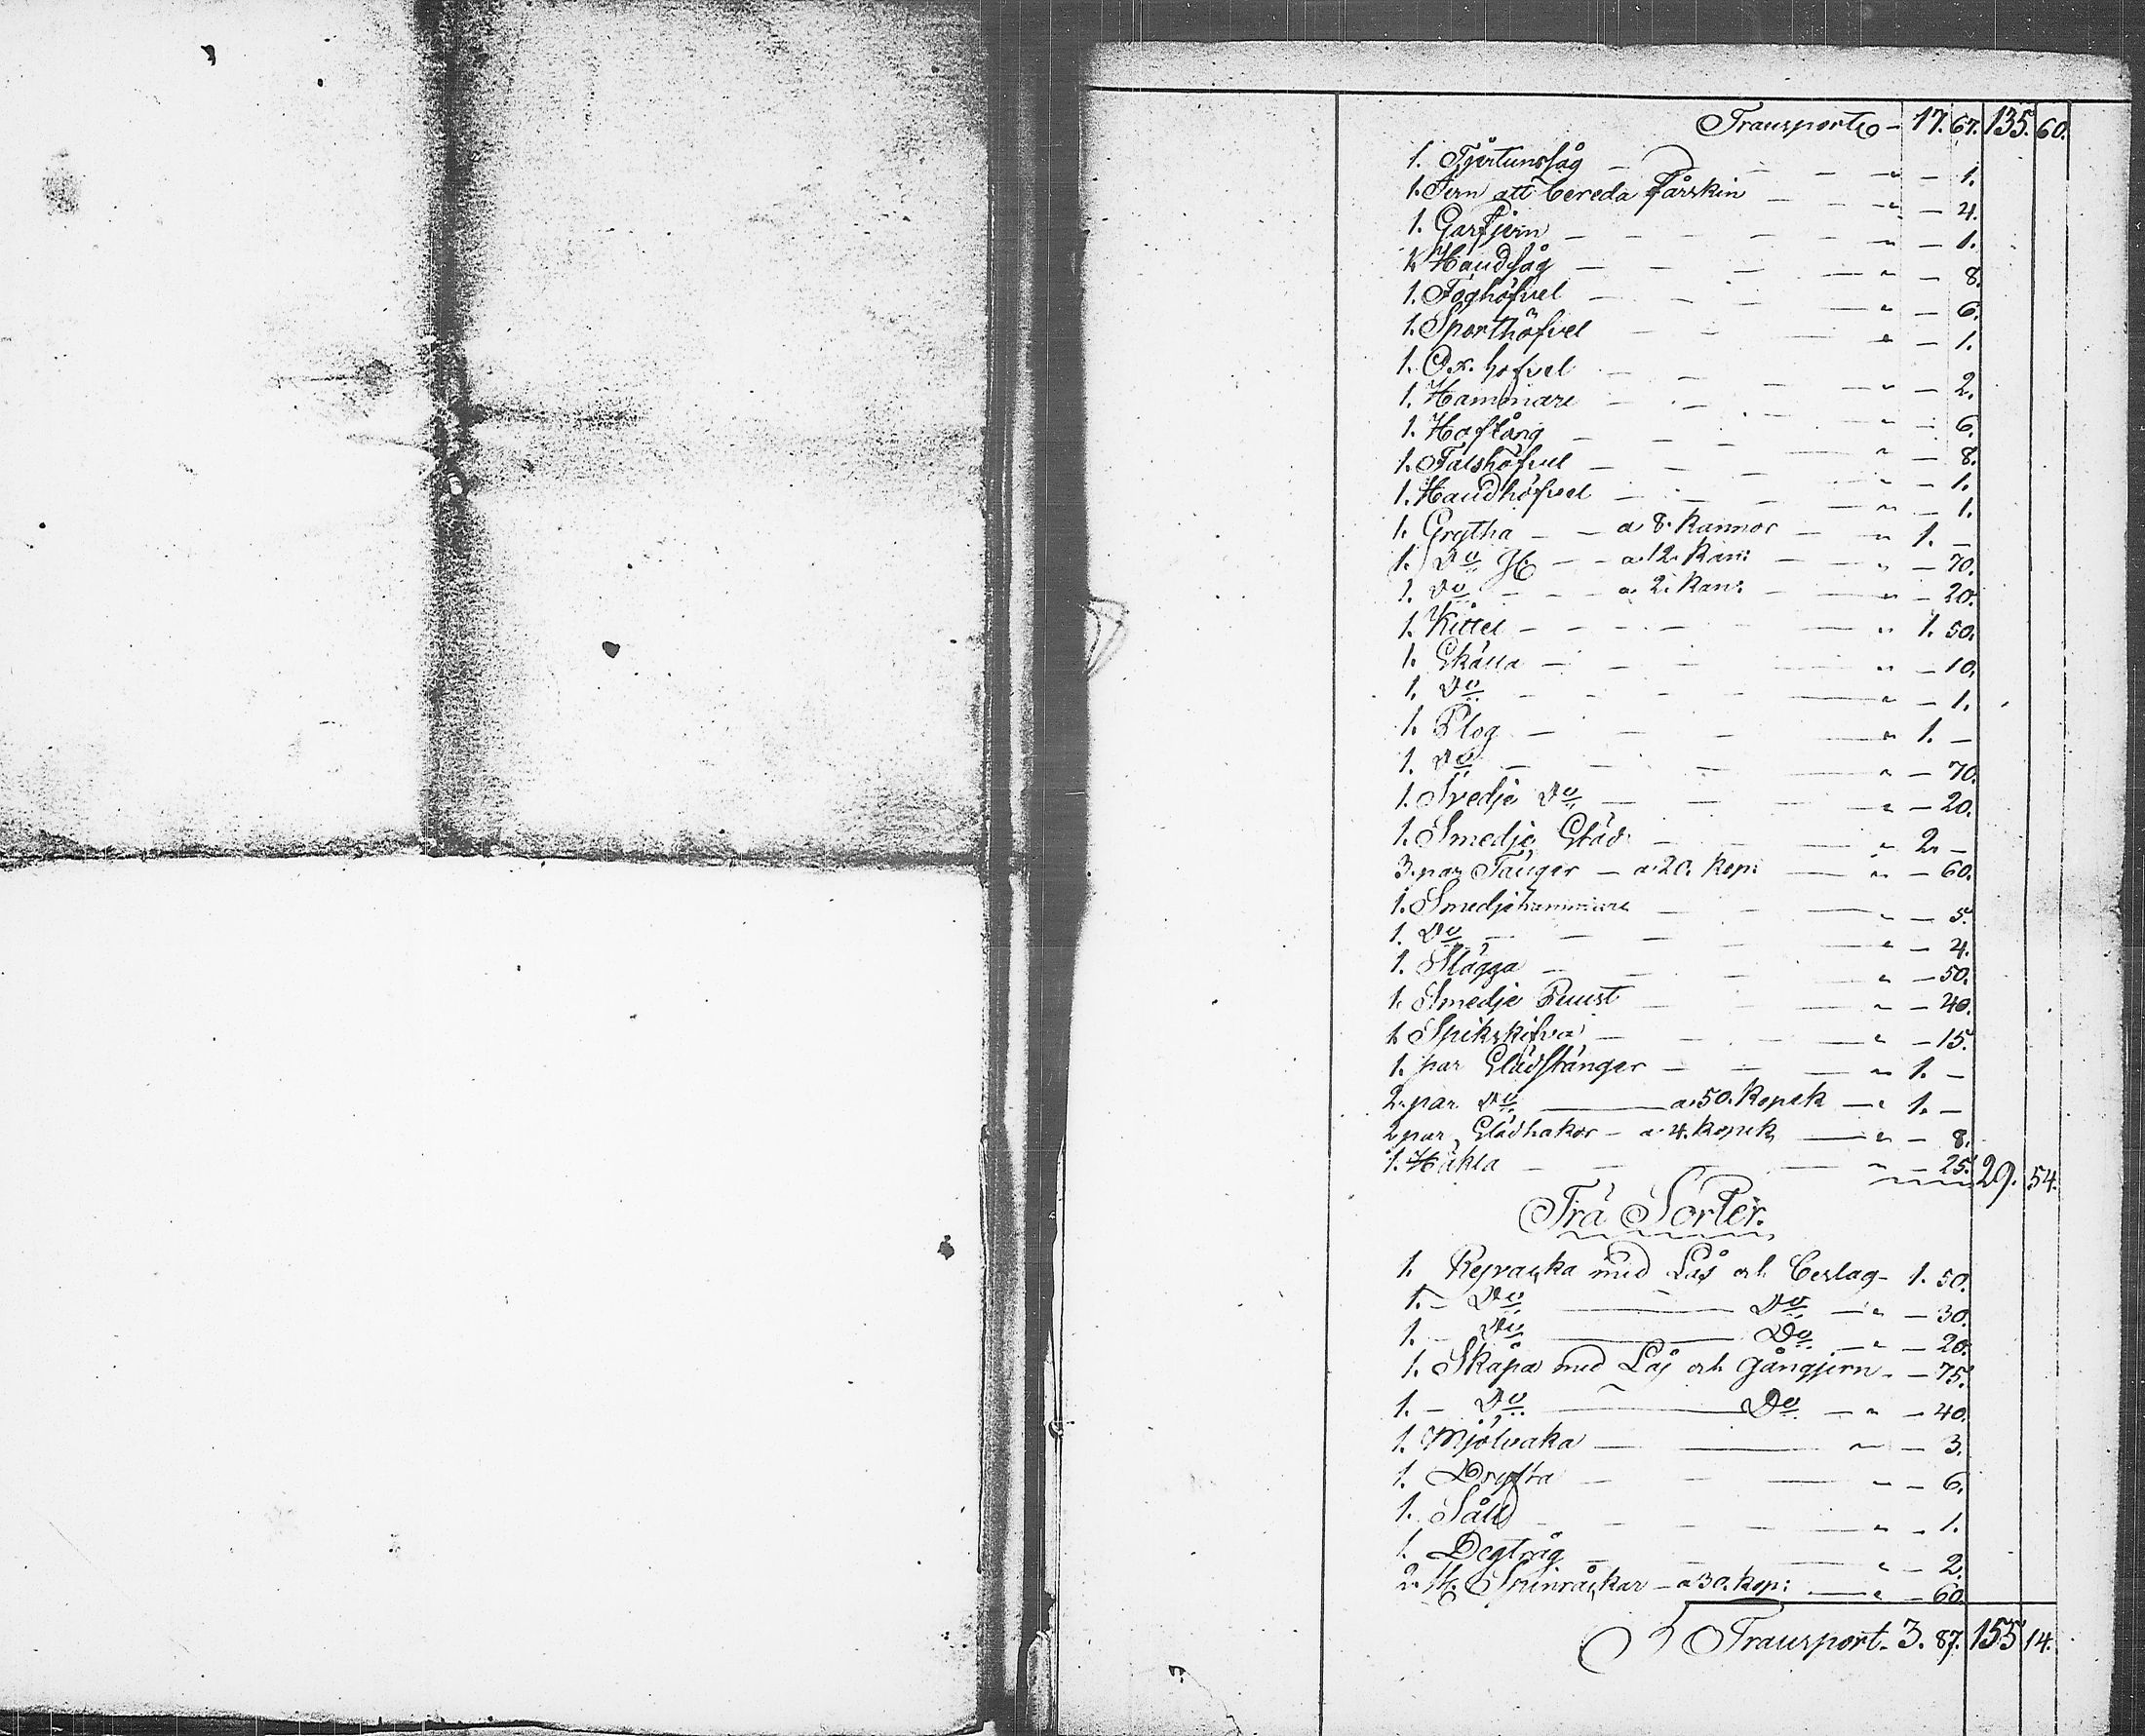 Transport – 17. 67. 135. 60.
1. Tjertunsåg – – – " – 1.
1. Jern att bereda Fårskin – – " – 4.
1. Garfjern – – – " – 1.
1. Handsåg – – – " – 8.
1. Foghöfvel – – – " – 6.
1. Sponthöfvel – – – " – 1.
1. Ox. höfvel – – – " – 2.
1. Hammare – – – " – 6.
1. Hoftång – – – " – 8.
1. Falshöfvel – – – " – 1.
1. Handhöfvel – – – " – 1.
1. Grytha – – a 8. Kannor – " 1. –
1. Do – – a 12. Kan: – " – 70.
1. Do – – – a 2. Kan: – " – 20.
1. Kittel – – – – " 1. 50.
1. Skålla – – – " – 10.
1. Do – – – " – 1.
1. Plog – – – " 1. –
1. Do – – – " – 70.
1. Svedje Do – – – " – 20.
1. Smedje Städ – – – " 2. –
3. par Tänger – a 20. Kop: – " – 60.
1. Smedjehammare – – " – 5.
1. Do – – – " – 4.
1. Slägga – – – " – 50.
1. Smedje Puust – – – " – 40.
1. Spikskifva – – – " – 15.
1. par Slädstänger – – – " 1. –
2. par Do – a 50. Kopek – " 1. –
2 par Slädhakor – a 4. Kopek – " – 8.
1. Häkla – – – " – 25. 29. 54.
Trä Sorter.
1. Rejvaska med Lås och Beslag – 1. 50.
1. – Do – Do – " – 30.
1. – Do – Do – " – 20.
1. Skåpa med Lås och Gångjern – – 75.
1. – Do – Do – " – 40.
1. Mjölvaka – – " – 3.
1. Dryfta – – – " – 6.
1. Såll – – – " – 1.
1. Degtråg – – – " – 2.
2. st. Spinråckar – a 30. Kop: – " – 60.
Transport – 3. 87. 155 14.